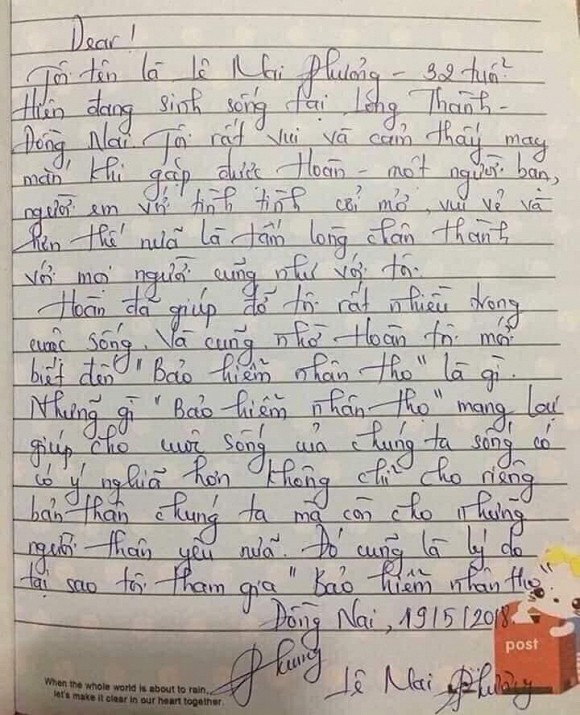 Dear!
Tôi tên là Lê Mai Phương - 32 tuổi
Hiện đang sinh sống tại Long Thành -
Đồng Nai Tôi rất vui và cảm thấy may
mắn khi gặp được Hoàn - một người bạn,
người em với tính tình cởi mở, vui vẻ và
hơn thế nữa là tấm lòng chân thành
với mọi người cũng như với tôi.
Hoàn đã giúp đỡ tôi rất nhiều trong
cuộc sống. Và cũng nhờ Hoàn tôi mới
biết đến "Bảo hiểm nhân thọ" là gì.
Những gì "Bảo hiểm nhân thọ" mang lại
giúp cho cuộc sống của chúng ta sống có
có ý nghĩa hơn không chỉ cho riêng
bản thân chúng ta mà còn cho những
người thân yêu nữa. Đó cũng là lý do
tại sao tôi tham gia "Bảo hiểm nhân thọ"
Đồng Nai, 19/5/2018.
Phương
Lê Mai Phương
post
When the whole world is about to rain,
let's make it clear in our heart together.